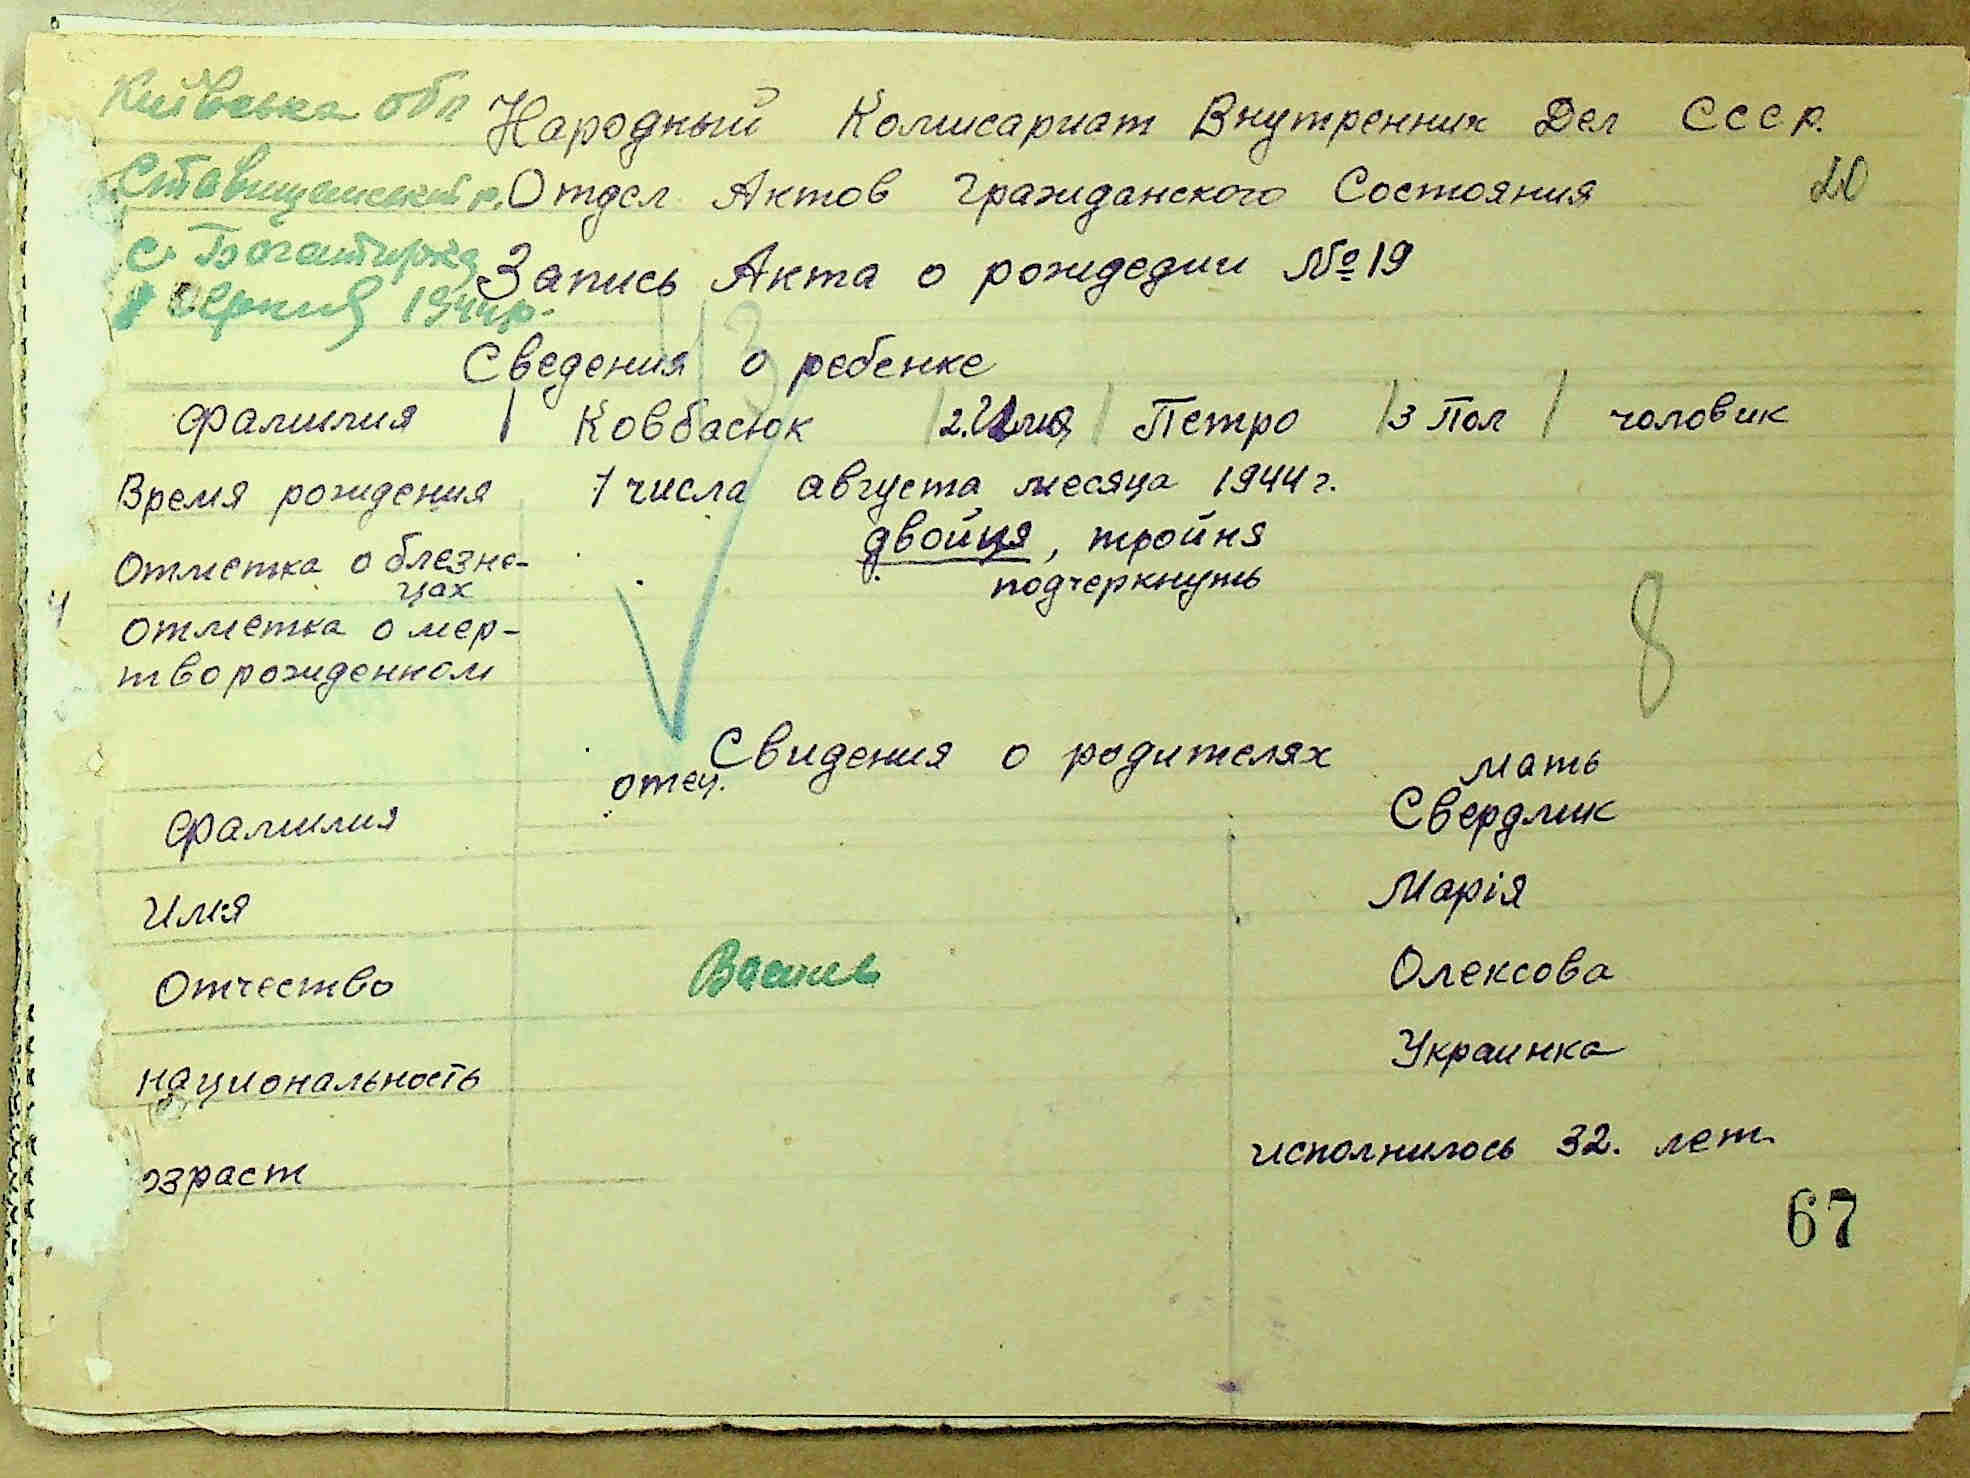 Київська обл
Народный Комисариат Внутренних Дел СССР.
Ставищенский р.
Отдел Актов Гражданского Состояния
20
с. Богатирка
Запись Акта о рождедии №19
серпня 1944р.
13
Сведения о ребенке
фамилия | Ковбасюк | 2. Имя | Петро | 3 Пол | чоловик
Время рождения 7 числа августа месяца 1944 г.
Отметка о блезне-
цах
двойця, тройня
подчеркнуть
Отметка о мер-
творожденном
8
Свидения о родителях
отец. мать
фамилия Свердлик
Имя Марія
Отчество Василь Олексова
национальность Украинка
озраст исполнилось 32. лет.
67